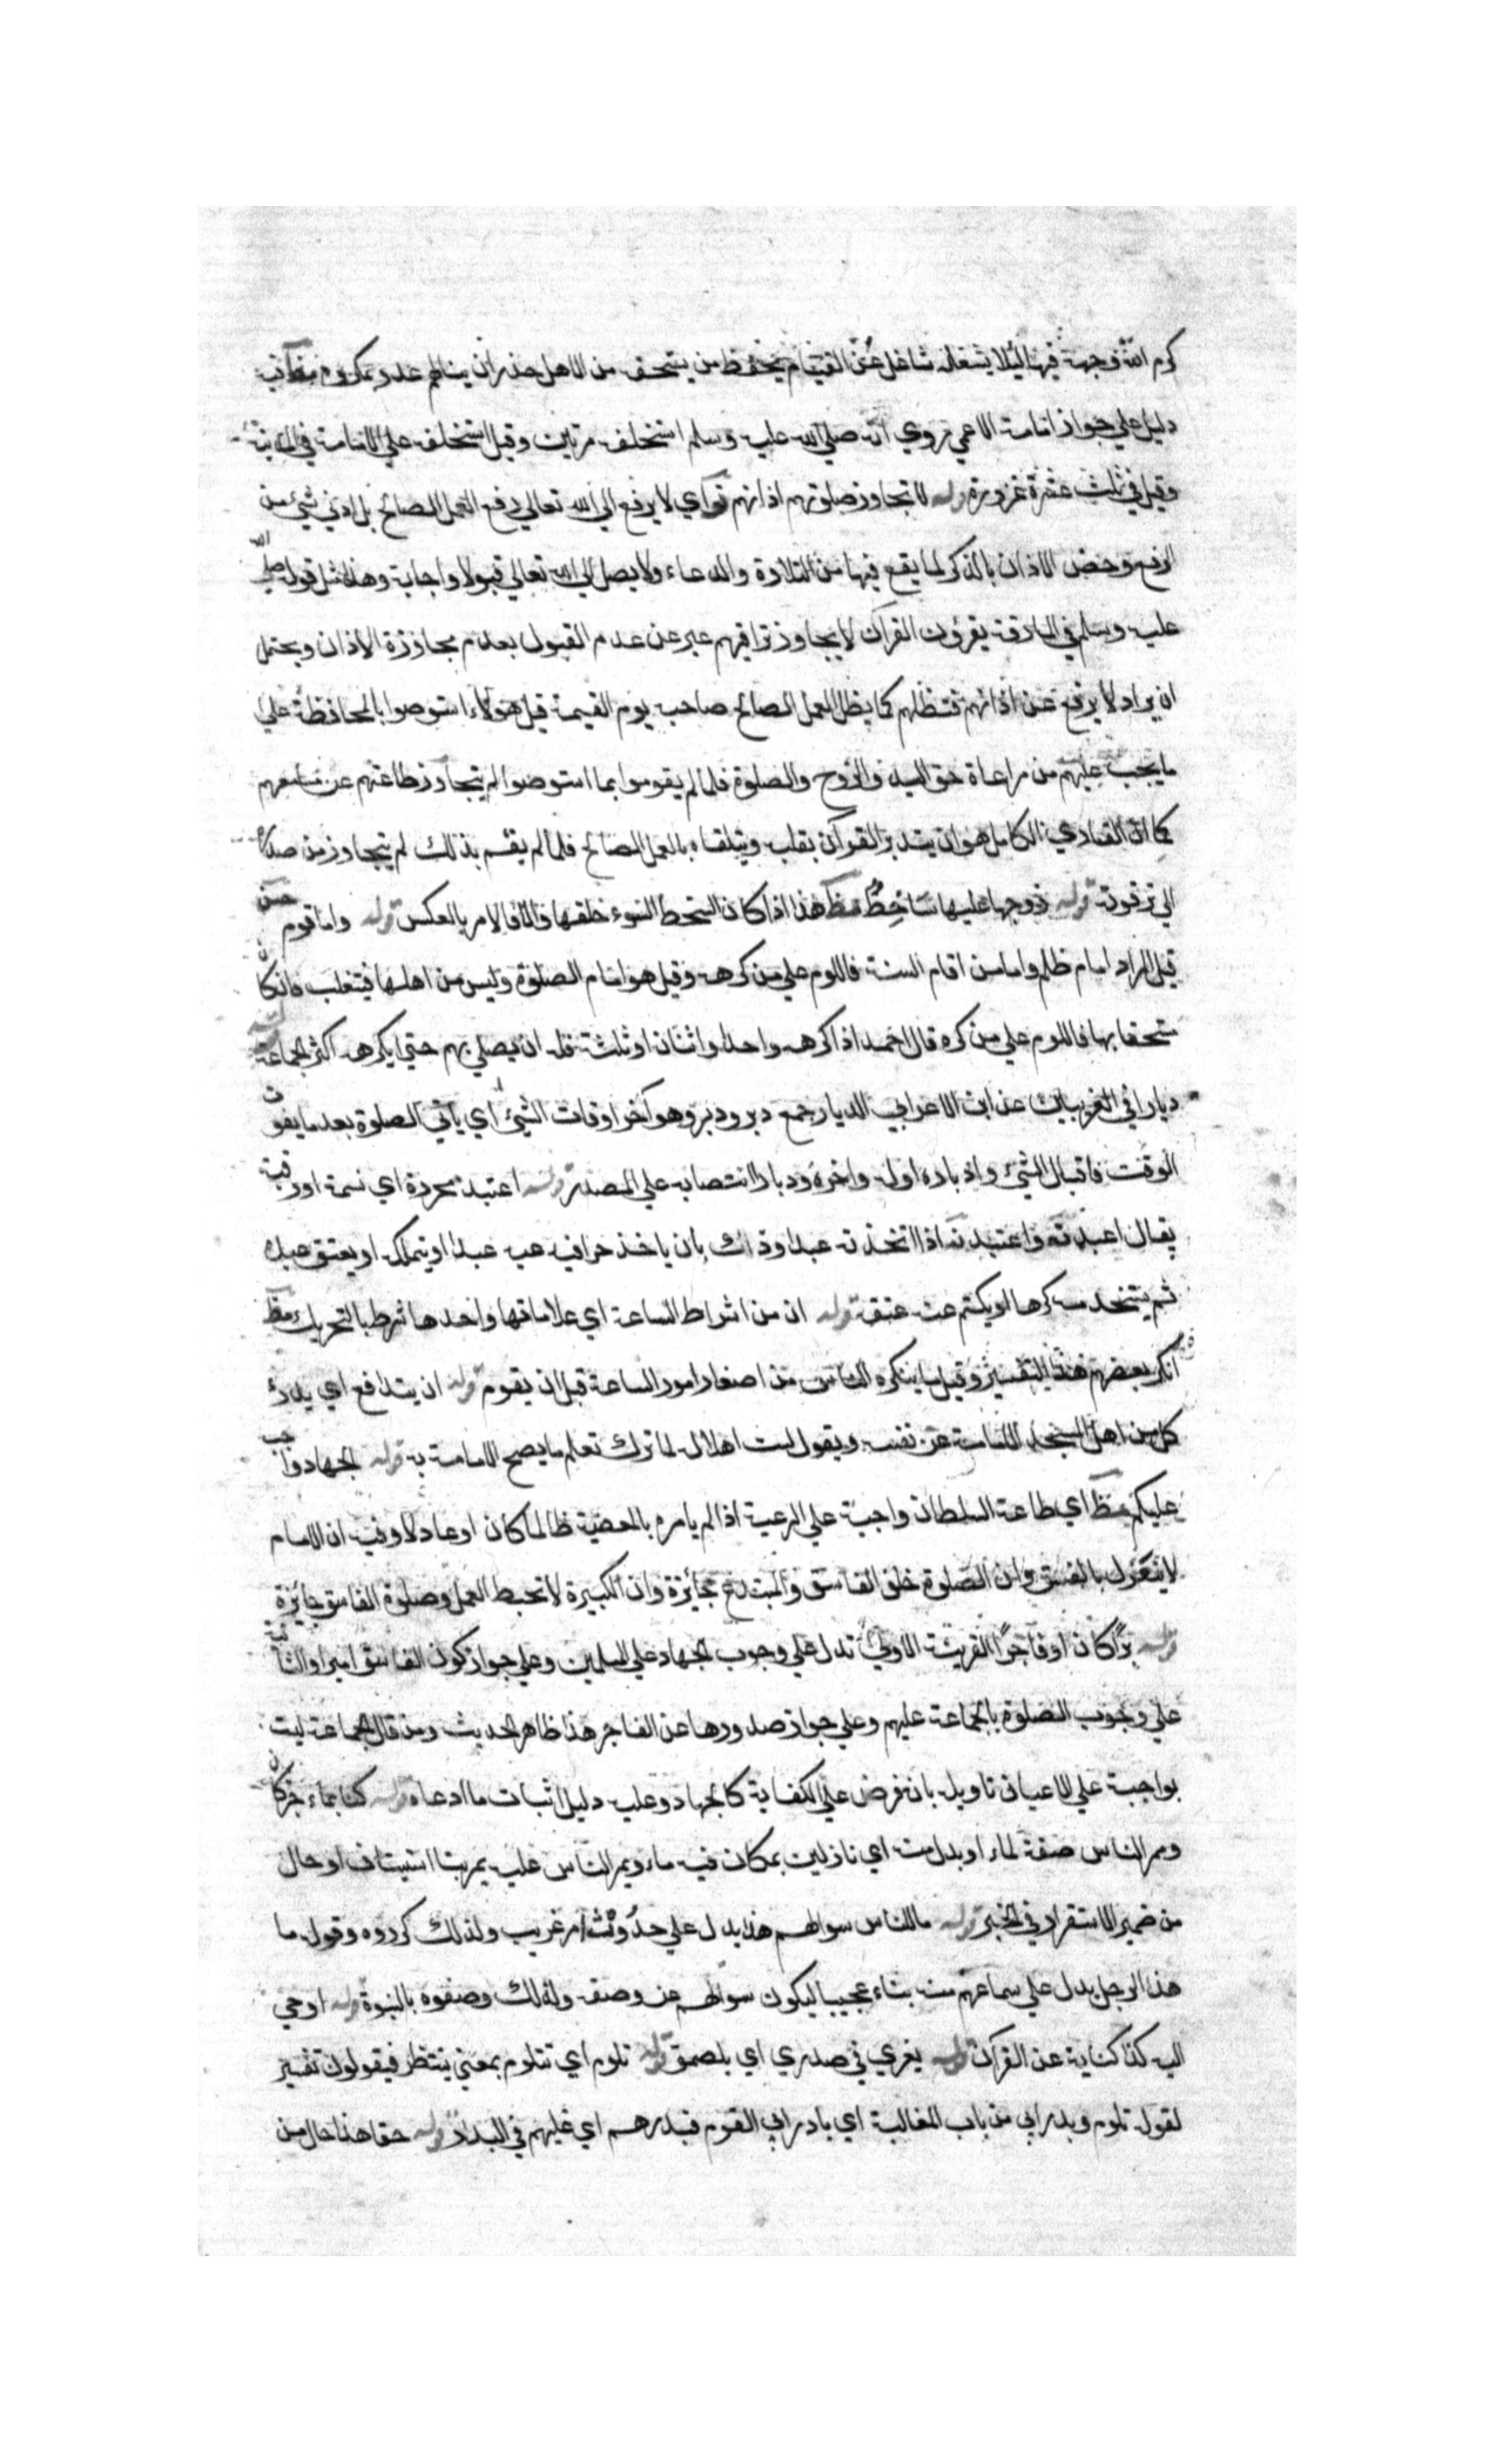 كرم الله وجهه فيها لئلا يشغله شاغل عن القيام بحفظ من يستحفظ من الاهل حذر ان ينالهم عدو بمكروه مظ فيه
دليل علي جواز امامة الاعمي روي انه صلي الله عليه وسلم استخلفه مرتين وقيل استخلفه علي الامامة في المدينة
وقيل في ثلث عشرة غزوة قوله لا تجاوز صلوتهم اذانهم تو اي لا يرفع الي الله تعالي رفع العمل الصالح بل ادني شيء من
الرفع وخص الاذان بالذكر لما يقع فيها من التلاوة والدعاء ولا يصل الي الله تعالي قبولا واجابة وهذا مثل قوله صلي الله
عليه وسلم في المارقة يقرؤن القرآن لا يجاوز تراقيهم عبر عن عدم القبول بعدم مجاوزة الاذان ويحتمل
ان يراد لا يرفع عن اذانهم فتظلهم كما يظل العمل الصالح صاحبه يوم القيمة قيل هؤلاء استوصوا بالمحافظة علي
ما يجب عليهم من مراعاة حق السيد والزوج والصلوة فلما لم يقوموا بما استوصوا لم يتجاوز طاعتهم عن مسامعهم
كما ان القاري الكامل هو ان يتدبر القرآن بقلبه ويتلقاه بالعمل الصالح فلما لم يقم بذلك لم يتجاوز من صدره
الي ترقوته قوله زوجها عليها ساخط مظ هذا اذا كان السخط لسوء خلقها والا فالامر بالعكس قوله واما قوم حسن
قيل المراد امام ظالم واما من اقام السنة فاللوم علي من كرهه وقيل هو امام الصلوة وليس من اهلها فيتغلب فان كان
مستحقا بها فاللوم علي من كره قال احمد اذا كرهه واحد او اثنان او ثلثة فله ان يصلي بهم حتي يكرهه اكثر الجماعة قوله
دبارا في الغريبين عن ابن الاعرابي الدبار جمع دبر ودبر وهو آخر اوقات الشيء اي يأتي الصلوة بعد ما يفوت
الوقت فاقبال الشيء وادباره اوله واخره ودبارا انتصابه علي المصدر قوله اعتبد محررة اي نسمة او رقبة
يقال اعبدته واعتبدته اذا اتخذته عبدا وذلك بان ياخذ حرا فيدعيه عبدا او يتملكه او يعتق عبده
ثم يستخدمه كرها او يكتم عنه عتقه قوله ان من اشراط الساعة اي علاماتها واحدها شرط بالتحريك مظ
انكر بعضهم هذا التفسير وقيل ما ينكره الناس من اصغار امور الساعة قبل ان يقوم قوله ان يتدافع اي يدرء
كل من اهل المسجد الامامة عن نفسه ويقول لست اهلا له لما ترك تعلم ما يصح الامامة به قوله الجهاد واجب
عليكم مظ اي طاعة السلطان واجبة علي الرعية اذا لم يامره بالمعصية ظالما كان او عادلا وفيه ان الامام
لا ينعزل بالفسق وان الصلوة خلف الفاسق والمبتدع جائزة وان الكبيرة لا تحبط العمل وصلوة الفاسق جائزة
قوله برا كان او فاجرا القرينة الاولي تدل علي وجوب الجهاد علي المسلمين وعلي جواز كون الفاسق اميرا والثانية
علي وجوب الصلوة بالجماعة عليهم وعلي جواز صدورها عن الفاجر هذا ظاهر الحديث ومن قال الجماعة ليست
بواجبة علي الاعيان تاوله بانه فرض علي الكفاية كالجهاد وعليه دليل اثبات ما ادعاه قوله كنا بماء خبر كان
وممر الناس صفة لماء او بدل منه اي نازلين بمكان فيه ماء ويمر الناس عليه يمر بنا استيناف او حال
من ضمير الاستقرار في الخبر قوله ما للناس سوالهم هذا يدل علي حدوث امر غريب ولذلك كرروه وقوله ما
هذا الرجل يدل علي سماعهم منه بناء عجيبا ليكون سوالهم عن وصفه ولذلك وصفوه بالنبوة قوله اوحي
اليه كذا كناية عن القرآن قوله يغري في صدري اي يلصق قوله تلوم اي تتلوم بمعني ينتظر فيقولون تفسير
لقوله تلوم وبدر ابي من باب المغالبة اي بادر ابي القوم فبدرهم اي غلبهم في البدار قوله حقا هذا حال من